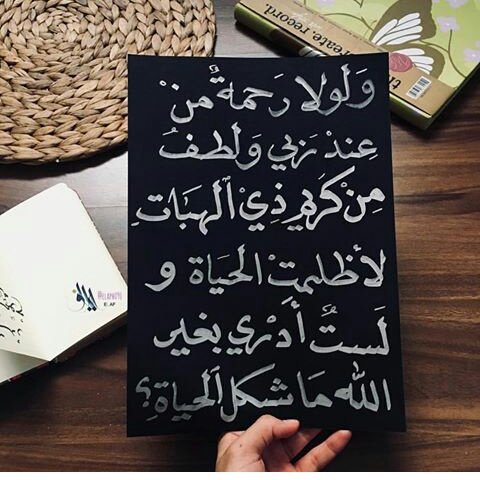 وَلولا رَحمةٌ منْ
عِندْ رَبي وَلطفُ
مِنْ كَريمٍ ذِيْ ٱلهبَاتِ
لأظلمتْ الحيَاة و
لَستُ أَدْري بغير
الله مَا شكل ٱلحياةِ؟
create.
record.
إيلاف
ELAF